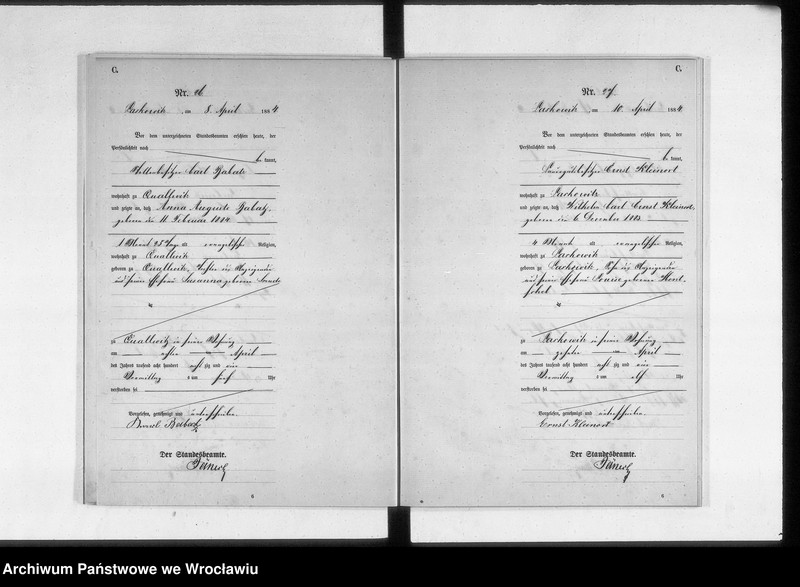 C.
Nr. 26
am 8. April 1884
Vor dem unterzeichneten Standesbeamten erschien heute, der
Persönlichkeit nach
be kannt,
Carl
wohnhaft zu Quallwitz
und zeigte an, daß Anna Auguste
geboren den 11. Februar 1884
1 Monat 25 Tage alt evangelischer Religion,
wohnhaft zu Quallwitz
geboren zu Quallwitz, Tochter des Anzeigenden
und seiner Ehefrau Susanna geborenen
zu Quallwitz in seiner Wohnung
am achten April
des Jahres tausend acht hundert acht zig und vier
Vormittag um fünf Uhr
verstorben sei
Vorgelesen, genehmigt und unterschrieben
Der Standesbeamte.
6
C.
Nr. 27
am 10. April 1884
Vor dem unterzeichneten Standesbeamten erschien heute, der
Persönlichkeit nach
be kannt,
Ernst Kleinert
wohnhaft zu
und zeigte an, daß Wilhelm Carl Ernst Kleinert,
geboren den 6. December 1883
4 Monat alt evangelischer Religion,
wohnhaft zu
geboren zu Sohn des Anzeigenden
und seiner Ehefrau Louise geborenen
zu in seiner Wohnung
am zehnten April
des Jahres tausend acht hundert acht zig und vier
Vormittag um elf Uhr
verstorben sei
Vorgelesen, genehmigt und unterschrieben
Ernst Kleinert
Der Standesbeamte.
6
Archiwum Państwowe we Wrocławiu